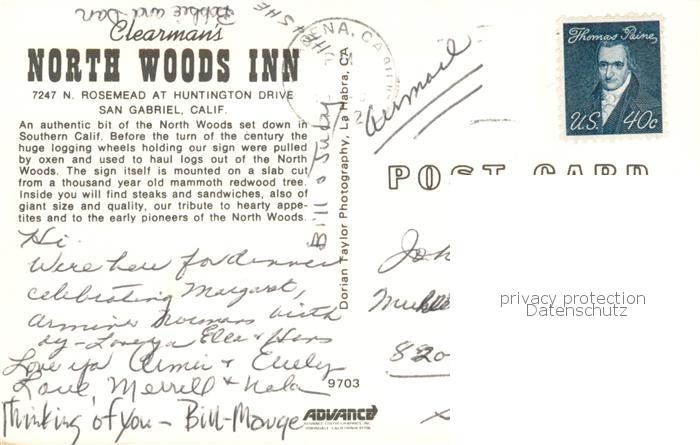 Bobbie and Dan
Clearman's
NORTH WOODS INN
7247 N. ROSEMEAD AT HUNTINGTON DRIVE
SAN GABRIEL, CALIF.
An authentic bit of the North Woods set down in
Southern Calif. Before the turn of the century the
huge logging wheels holding our sign were pulled
by oxen and used to haul logs out of the North
Woods. The sign itself is mounted on a slab cut
from a thousand year old mammoth redwood tree.
Inside you will find steaks and sandwiches, also of
giant size and quality, our tribute to hearty appe-
tites and to the early pioneers of the North Woods.
Hi.
Were here for dinner
celebrating Margaret,
birth
day - Love ya Ella + Hans
Love ya Armin + Evelyn
Love, Merrell + Nela
Thinking of you - Bill-Marge
Bill + Judy
Dorian Taylor Photography, La Habra, CA
9703
ADVANCE
CA
airmail
Thomas Paine
U.S. 40c
POST CARD
Joh
820
privacy protection
Datenschutz